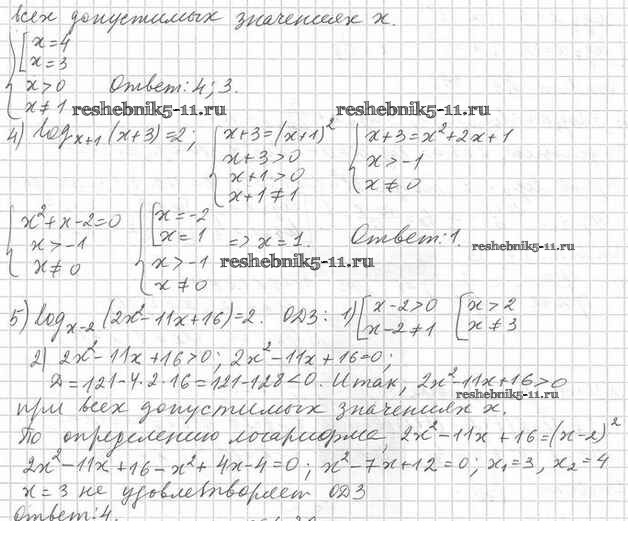 всех допустимых значениях x.
{ [ x=4
x=3
x>0 Ответ: 4; 3.
x≠1
reshebnik5-11.ru reshebnik5-11.ru
4) log_{x+1}(x+3)=2; { x+3=(x+1)² { x+3=x²+2x+1
x+3>0 x>-1
x+1>0 x≠0
x+1≠1
{ x²+x-2=0 { [ x=-2
x>-1 x=1 => x=1. Ответ: 1. reshebnik5-11.ru
x≠0 x>-1 reshebnik5-11.ru
x≠0
5) log_{x-2}(2x²-11x+16)=2. ОДЗ: 1) [ x-2>0 [ x>2
x-2≠1 x≠3
2) 2x²-11x+16>0; 2x²-11x+16=0;
Д=121-4·2·16=121-128<0. Итак, 2x²-11x+16>0
reshebnik5-11.ru
при всех допустимых значениях x.
По определению логарифма, 2x²-11x+16=(x-2)²
2x²-11x+16-x²+4x-4=0; x²-7x+12=0; x₁=3, x₂=4
x=3 не удовлетворяет ОДЗ
Ответ: 4.